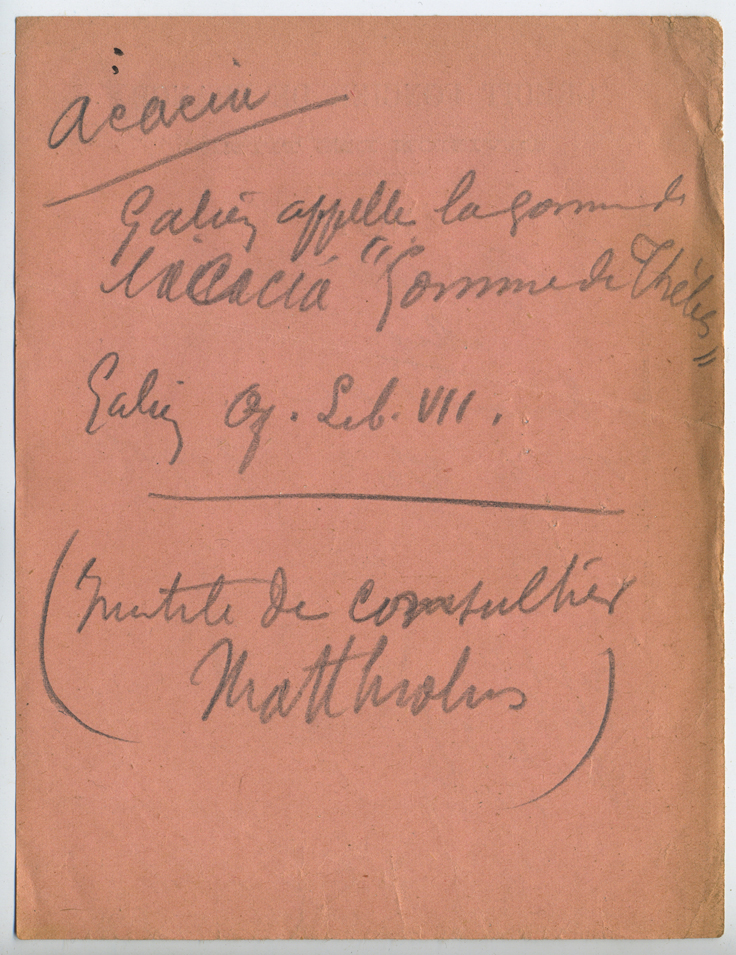 acacia
Galien appelle la gomme de
l'acacia "Gomme de Thèbes"
Galien Op. Lib. VII.
(Inutile de consulter
Matthiolus)